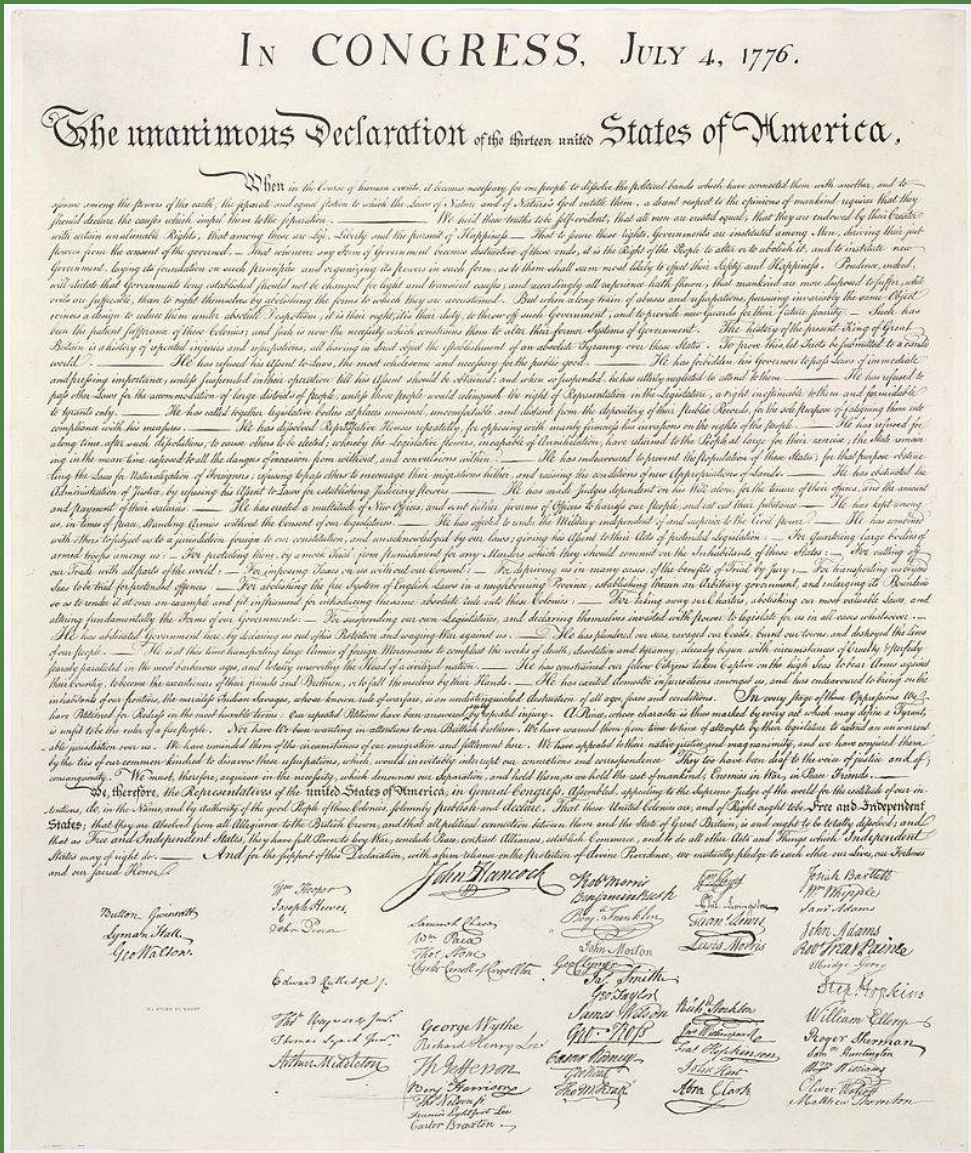 IN CONGRESS, JULY 4, 1776.
The unanimous Declaration of the thirteen united States of America,
When in the Course of human events, it becomes necessary for one people to dissolve the political bands which have connected them with another, and to
assume among the powers of the earth, the separate and equal station to which the Laws of Nature and of Nature's God entitle them, a decent respect to the opinions of mankind requires that they
should declare the causes which impel them to the separation. — We hold these truths to be self-evident, that all men are created equal, that they are endowed by their Creator
with certain unalienable Rights, that among these are Life, Liberty and the pursuit of Happiness. — That to secure these rights, Governments are instituted among Men, deriving their just
powers from the consent of the governed, — That whenever any Form of Government becomes destructive of these ends, it is the Right of the People to alter or to abolish it, and to institute new
Government, laying its foundation on such principles and organizing its powers in such form, as to them shall seem most likely to effect their Safety and Happiness. Prudence, indeed,
will dictate that Governments long established should not be changed for light and transient causes; and accordingly all experience hath shewn, that mankind are more disposed to suffer, while
evils are sufferable, than to right themselves by abolishing the forms to which they are accustomed. But when a long train of abuses and usurpations, pursuing invariably the same Object
evinces a design to reduce them under absolute Despotism, it is their right, it is their duty, to throw off such Government, and to provide new Guards for their future security. — Such has
been the patient sufferance of these Colonies; and such is now the necessity which constrains them to alter their former Systems of Government. The history of the present King of Great
Britain is a history of repeated injuries and usurpations, all having in direct object the establishment of an absolute Tyranny over these States. To prove this, let Facts be submitted to a candid
world. — He has refused his Assent to Laws, the most wholesome and necessary for the public good. — He has forbidden his Governors to pass Laws of immediate
and pressing importance, unless suspended in their operation till his Assent should be obtained; and when so suspended, he has utterly neglected to attend to them. — He has refused to
pass other Laws for the accommodation of large districts of people, unless those people would relinquish the right of Representation in the Legislature, a right inestimable to them and formidable
to tyrants only. — He has called together legislative bodies at places unusual, uncomfortable, and distant from the depository of their public Records, for the sole purpose of fatiguing them into
compliance with his measures. — He has dissolved Representative Houses repeatedly, for opposing with manly firmness his invasions on the rights of the people. — He has refused for
a long time, after such dissolutions, to cause others to be elected; whereby the Legislative powers, incapable of Annihilation, have returned to the People at large for their exercise; the State remain-
ing in the mean time exposed to all the dangers of invasion from without, and convulsions within. — He has endeavoured to prevent the population of these States; for that purpose obstruc-
ting the Laws for Naturalization of Foreigners; refusing to pass others to encourage their migrations hither, and raising the conditions of new Appropriations of Lands. — He has obstructed the
Administration of Justice, by refusing his Assent to Laws for establishing Judiciary powers. — He has made Judges dependent on his Will alone, for the tenure of their offices, and the amount
and payment of their salaries. — He has erected a multitude of New Offices, and sent hither swarms of Officers to harrass our people, and eat out their substance. — He has kept among
us, in times of peace, Standing Armies without the Consent of our legislatures. — He has affected to render the Military independent of and superior to the Civil power. — He has combined
with others to subject us to a jurisdiction foreign to our constitution, and unacknowledged by our laws; giving his Assent to their Acts of pretended Legislation: — For Quartering large bodies of
armed troops among us: — For protecting them, by a mock Trial, from punishment for any Murders which they should commit on the Inhabitants of these States: — For cutting off
our Trade with all parts of the world: — For imposing Taxes on us without our Consent: — For depriving us in many cases, of the benefits of Trial by Jury: — For transporting us beyond
Seas to be tried for pretended offences: — For abolishing the free System of English Laws in a neighbouring Province, establishing therein an Arbitrary government, and enlarging its Boundaries
so as to render it at once an example and fit instrument for introducing the same absolute rule into these Colonies: — For taking away our Charters, abolishing our most valuable Laws, and
altering fundamentally the Forms of our Governments: — For suspending our own Legislatures, and declaring themselves invested with power to legislate for us in all cases whatsoever. —
He has abdicated Government here, by declaring us out of his Protection and waging War against us. — He has plundered our seas, ravaged our Coasts, burnt our towns, and destroyed the lives
of our people. — He is at this time transporting large Armies of foreign Mercenaries to compleat the works of death, desolation and tyranny, already begun with circumstances of Cruelty & perfidy
scarcely paralleled in the most barbarous ages, and totally unworthy the Head of a civilized nation. — He has constrained our fellow Citizens taken Captive on the high Seas to bear Arms against
their Country, to become the executioners of their friends and Brethren, or to fall themselves by their Hands. — He has excited domestic insurrections amongst us, and has endeavoured to bring on the
inhabitants of our frontiers, the merciless Indian Savages, whose known rule of warfare, is an undistinguished destruction of all ages, sexes and conditions. In every stage of these Oppressions We
have Petitioned for Redress in the most humble terms: Our repeated Petitions have been answered only by repeated injury. A Prince, whose character is thus marked by every act which may define a Tyrant,
is unfit to be the ruler of a free people. Nor have We been wanting in attentions to our Brittish brethren. We have warned them from time to time of attempts by their legislature to extend an unwarrant-
able jurisdiction over us. We have reminded them of the circumstances of our emigration and settlement here. We have appealed to their native justice and magnanimity, and we have conjured them
by the ties of our common kindred to disavow these usurpations, which, would inevitably interrupt our connections and correspondence. They too have been deaf to the voice of justice and of
consanguinity. We must, therefore, acquiesce in the necessity, which denounces our Separation, and hold them, as we hold the rest of mankind, Enemies in War, in Peace Friends. —
We, therefore, the Representatives of the united States of America, in General Congress, Assembled, appealing to the Supreme Judge of the world for the rectitude of our in-
tentions, do, in the Name, and by Authority of the good People of these Colonies, solemnly publish and declare, That these United Colonies are, and of Right ought to be Free and Independent
States; that they are Absolved from all Allegiance to the British Crown, and that all political connection between them and the State of Great Britain, is and ought to be totally dissolved; and
that as Free and Independent States, they have full Power to levy War, conclude Peace, contract Alliances, establish Commerce, and to do all other Acts and Things which Independent
States may of right do. — And for the support of this Declaration, with a firm reliance on the Protection of divine Providence, we mutually pledge to each other our Lives, our Fortunes
and our sacred Honor.
Button Gwinnett
Lyman Hall
Geo Walton.
Wm Hooper
Joseph Hewes,
John Penn
Edward Rutledge /.
Thos Heyward Junr.
Thomas Lynch Junr.
Arthur Middleton
John Hancock
Samuel Chase
Wm Paca
Thos Stone
Charles Carroll of Carrollton
George Wythe
Richard Henry Lee
Th Jefferson
Benj Harrison
Thos Nelson jr.
Francis Lightfoot Lee
Carter Braxton
Robt Morris
Benjamin Rush
Benj. Franklin
John Morton
Geo Clymer
Jas. Smith
Geo. Taylor
James Wilson
Geo. Ross
Caesar Rodney
Geo Read
Tho M:Kean
Wm Floyd
Phil. Livingston
Frans. Lewis
Lewis Morris
Richd. Stockton
Jno Witherspoon
Fras. Hopkinson
John Hart
Abra Clark
Josiah Bartlett
Wm Whipple
Saml Adams
John Adams
Robt Treat Paine
Elbridge Gerry
Step. Hopkins
William Ellery
Roger Sherman
Saml Huntington
Wm Williams
Oliver Wolcott
Matthew Thornton